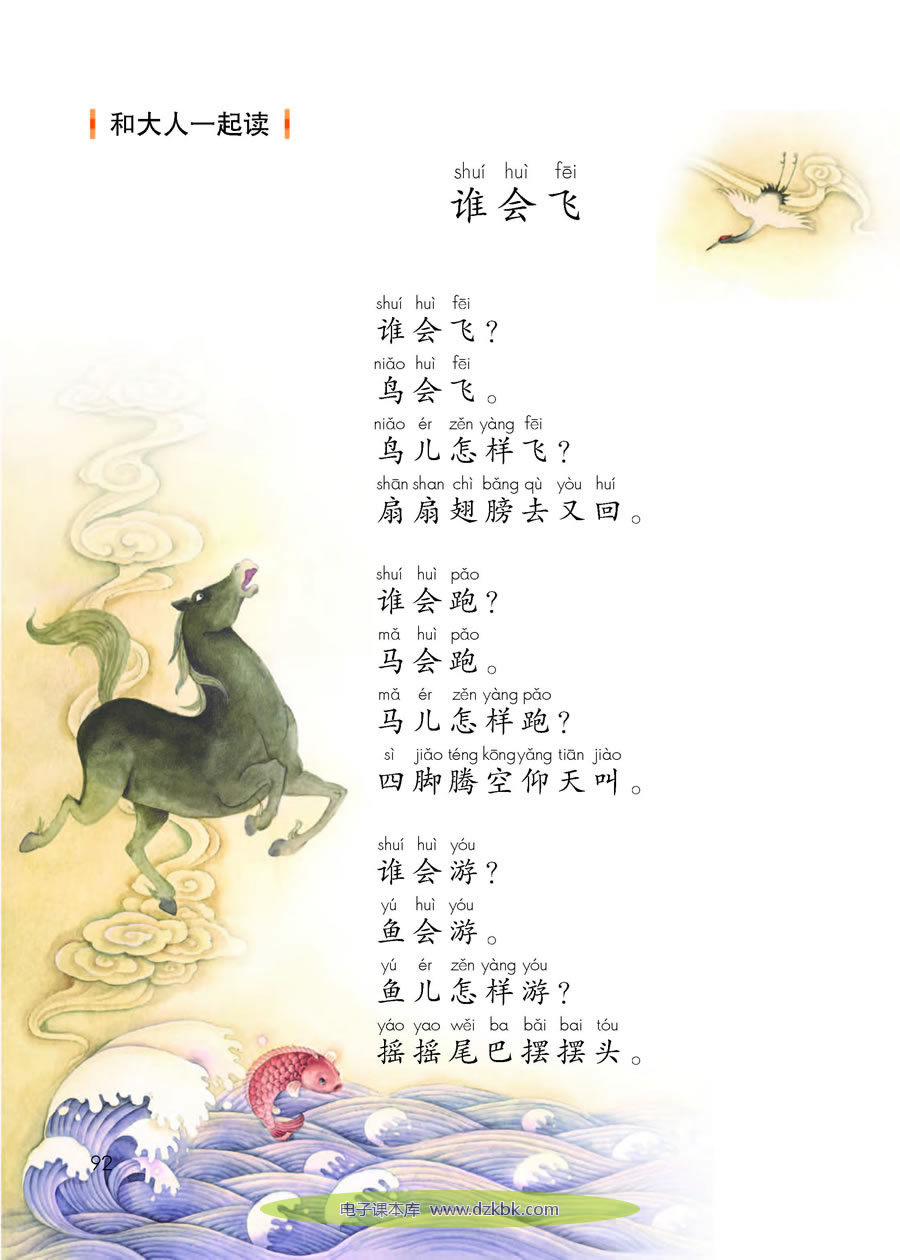 和大人一起读
shuí huì fēi
谁会飞
shuí huì fēi
谁会飞？
niǎo huì fēi
鸟会飞。
niǎo ér zěn yàng fēi
鸟儿怎样飞？
shān shan chì bǎng qù yòu huí
扇扇翅膀去又回。
shuí huì pǎo
谁会跑？
mǎ huì pǎo
马会跑。
mǎ ér zěn yàng pǎo
马儿怎样跑？
sì jiǎo téng kōng yǎng tiān jiào
四脚腾空仰天叫。
shuí huì yóu
谁会游？
yú huì yóu
鱼会游。
yú ér zěn yàng yóu
鱼儿怎样游？
yáo yao wěi ba bǎi bai tóu
摇摇尾巴摆摆头。
92
电子课本库 www.dzkbk.com